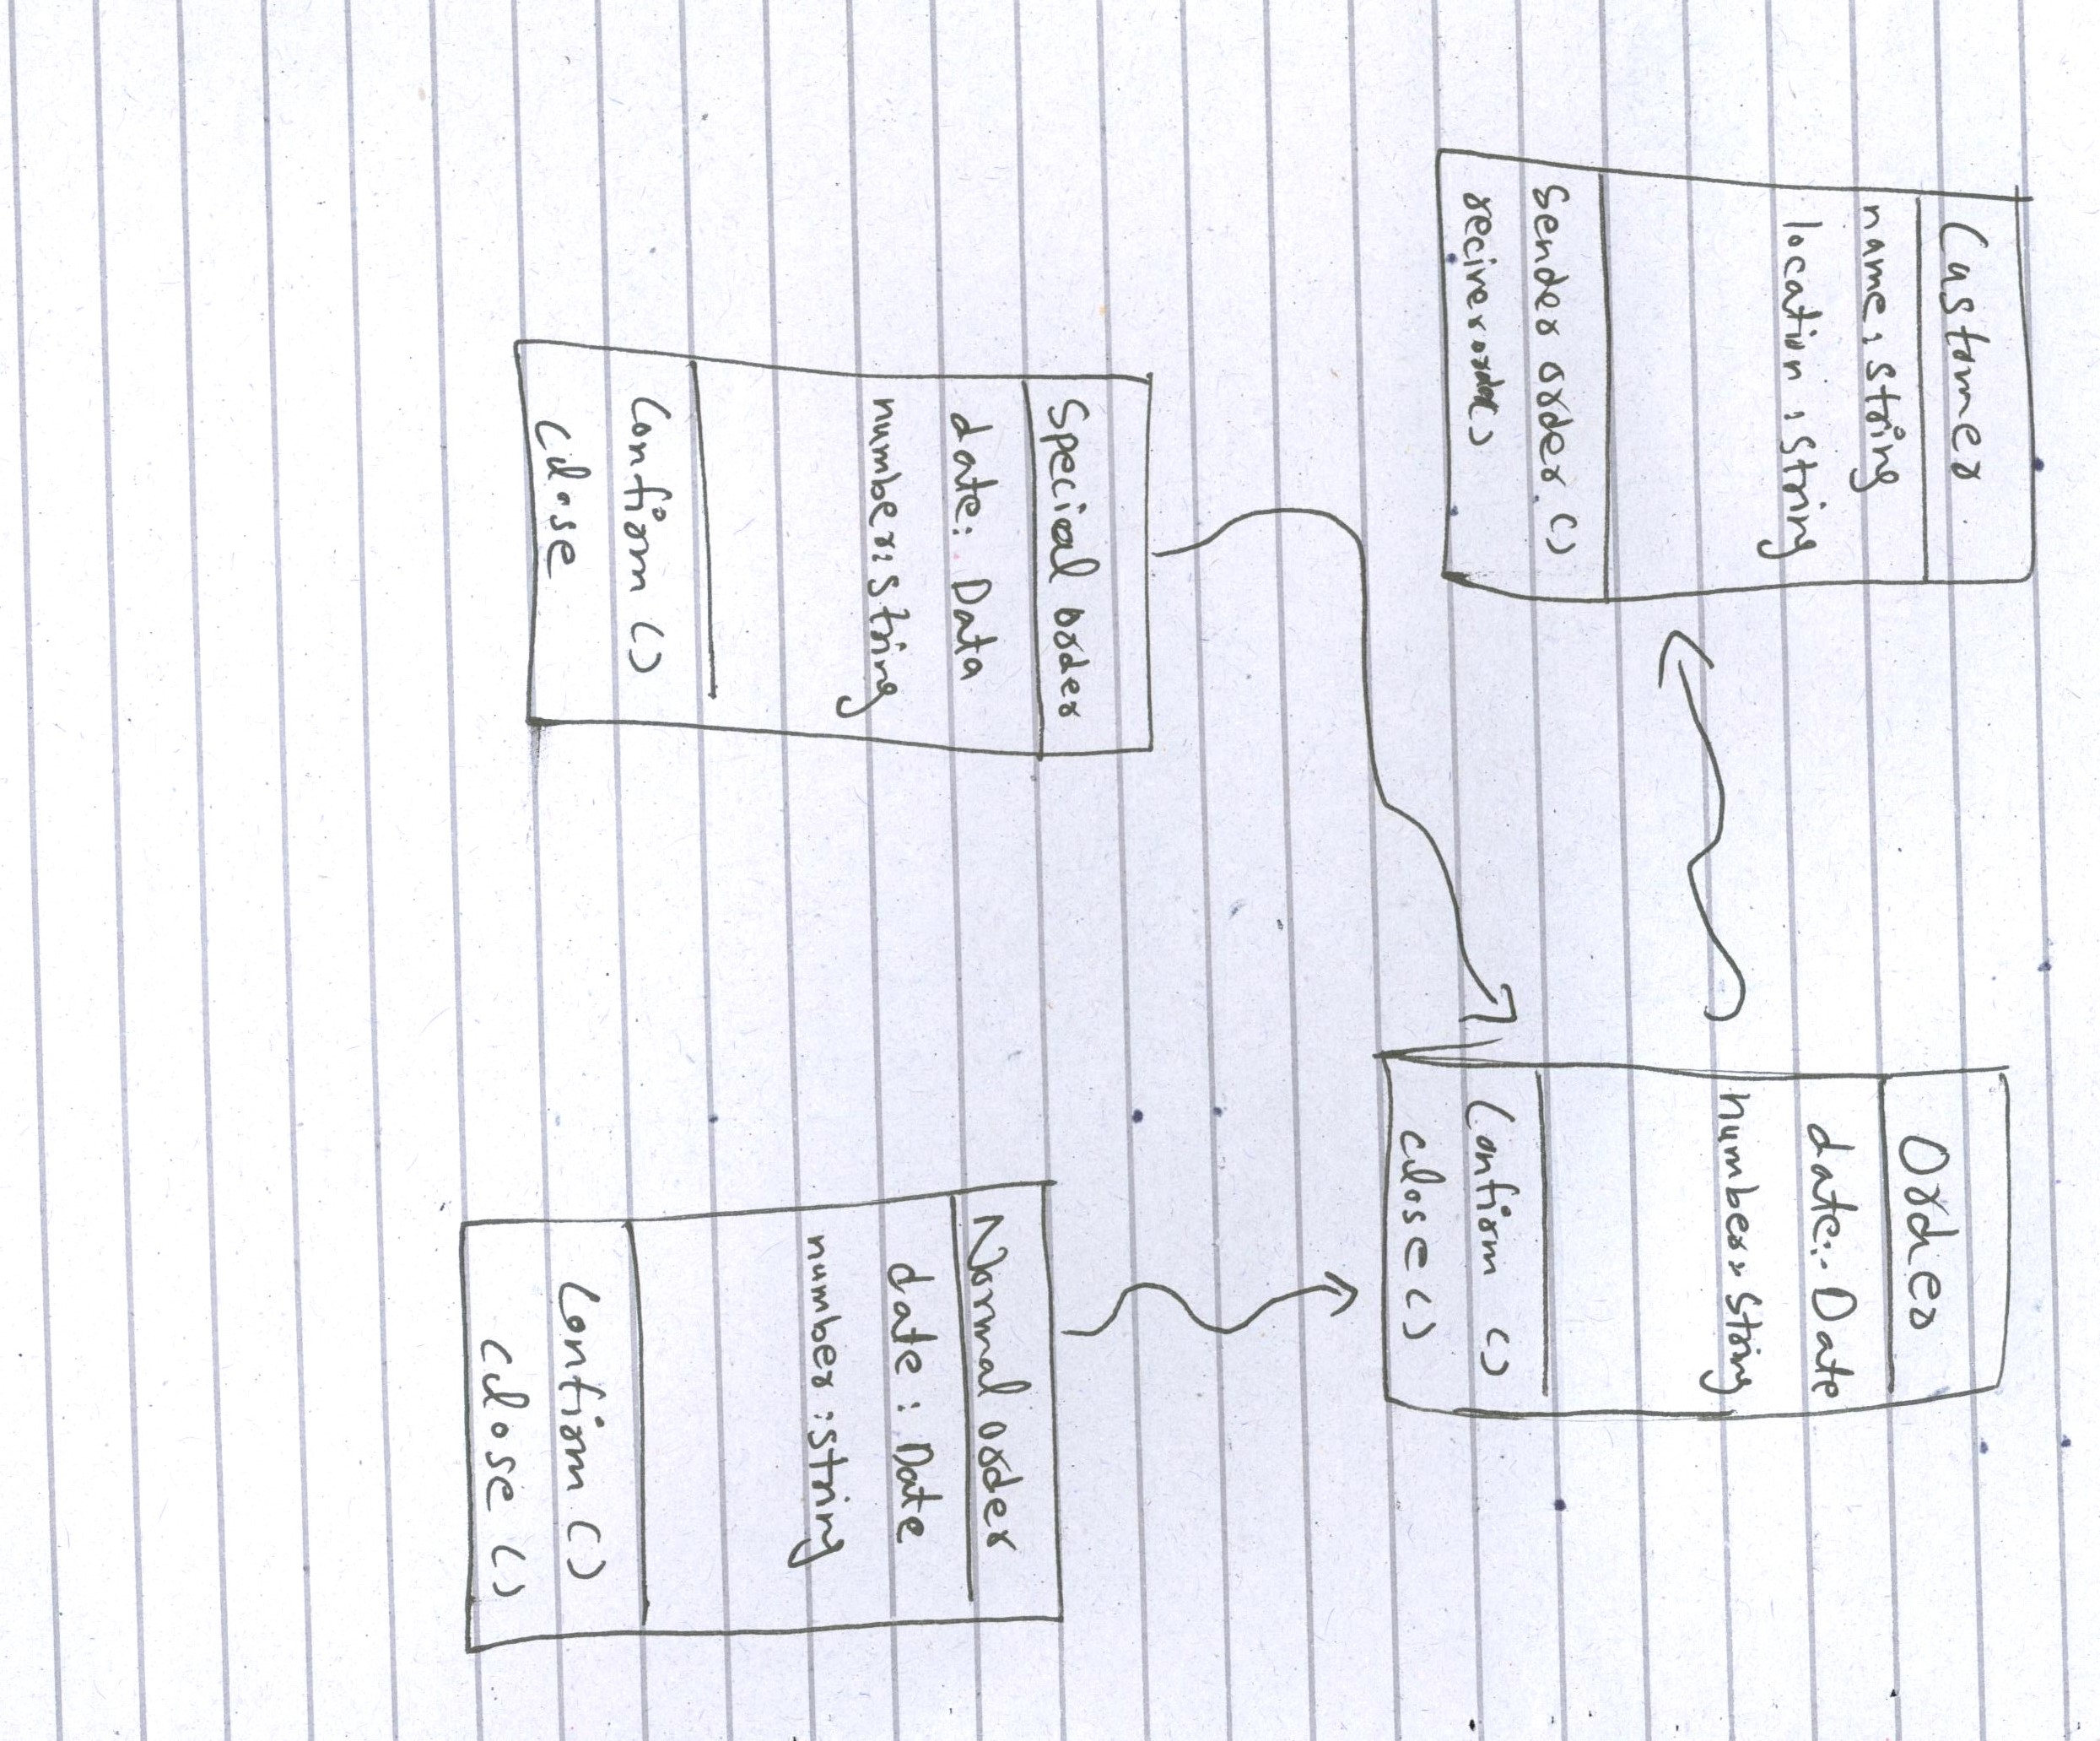 Customer
name: string
location: string
Sender order ()
reciver order ()
Order
date:- Date
number: string
Confirm ()
close ()
Special order
date: Data
number: string
Confirm ()
close
Normal order
date: Date
number: string
Confirm ()
close ()